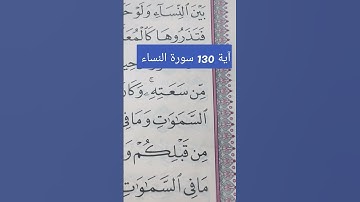 بَيْنَ ٱلنِّسَآءِ وَلَوْ حَ
فَتَذَرُوهَا كَٱلْمُعَ
آية 130 سورة النساء
مِّن سَعَتِهِۦۚ وَكَا
ٱلسَّمَٰوَٰتِ وَمَا فِي
مِن قَبْلِكُمْ وَ
مَا فِي ٱلسَّمَٰوَٰتِ